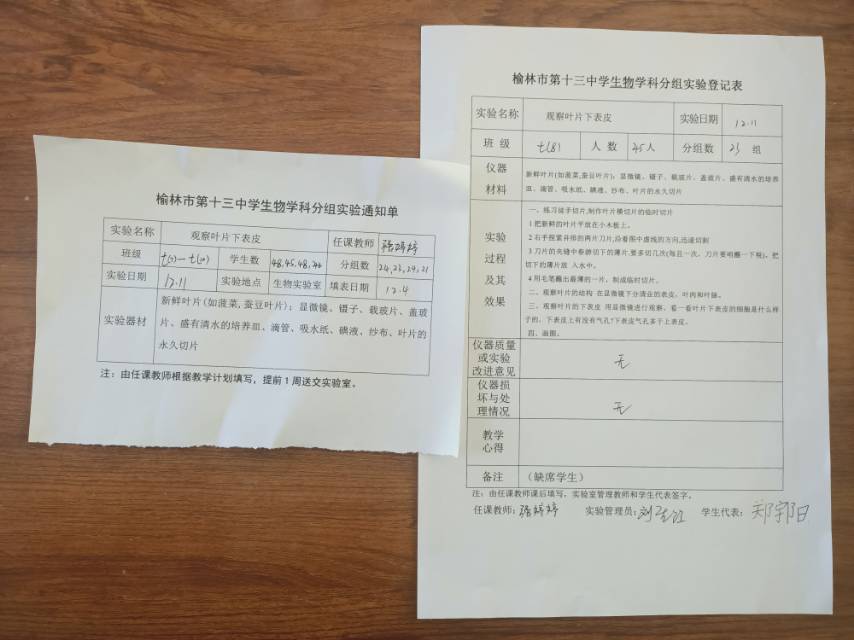 榆林市第十三中学生物学科分组实验通知单
实验名称 观察叶片下表皮 任课教师
班级 学生数 48,45,48,44 分组数 24,23,24,21
实验日期 12.11 实验地点 生物实验室 填表日期 12.4
实验器材
新鲜叶片(如菠菜,蚕豆叶片);显微镜、镊子、载玻片、盖玻
片、盛有清水的培养皿、滴管、吸水纸、碘液、纱布、叶片的
永久切片
注:由任课教师根据教学计划填写,提前1周送交实验室。
榆林市第十三中学生物学科分组实验登记表
实验名称 观察叶片下表皮 实验日期 12.11
班 级 七(8) 人 数 45人 分组数 23 组
仪器
材料
新鲜叶片(如菠菜,蚕豆叶片);显微镜、镊子、载玻片、盖玻片、盛有清水的培养
皿、滴管、吸水纸、碘液、纱布、叶片的永久切片
实验
过程
及其
效果
一、练习徒手切片,制作叶片横切片的临时切片
1把新鲜的叶片平放在小木板上。
2右手捏紧并排的两片刀片,沿着图中虚线的方向,迅速切割
3刀片的夹缝中存留切下的薄片,要多切几次(每且一次,刀片要咱蘸一下税)。把
切下的薄片放 入水中。
4用毛笔蘸出最薄的一片,制成临时切片。
二、观察叶片的结构 在显微镜下分清亚的表皮、叶肉和叶脉。
三、观察叶片的下表皮 用显微镜进行观察,看一看叶片下表皮的细胞是什么样
子的,下表皮上有没有气孔?下表皮气孔多于上表皮。
四、画图。
仪器质量
或实验
改进意见
无
仪器损
坏与处
理情况
无
教学
心得
备注 (缺席学生)
注:由任课教师课后填写,实验室管理教师和学生代表签字。
任课教师: 实验管理员: 学生代表: